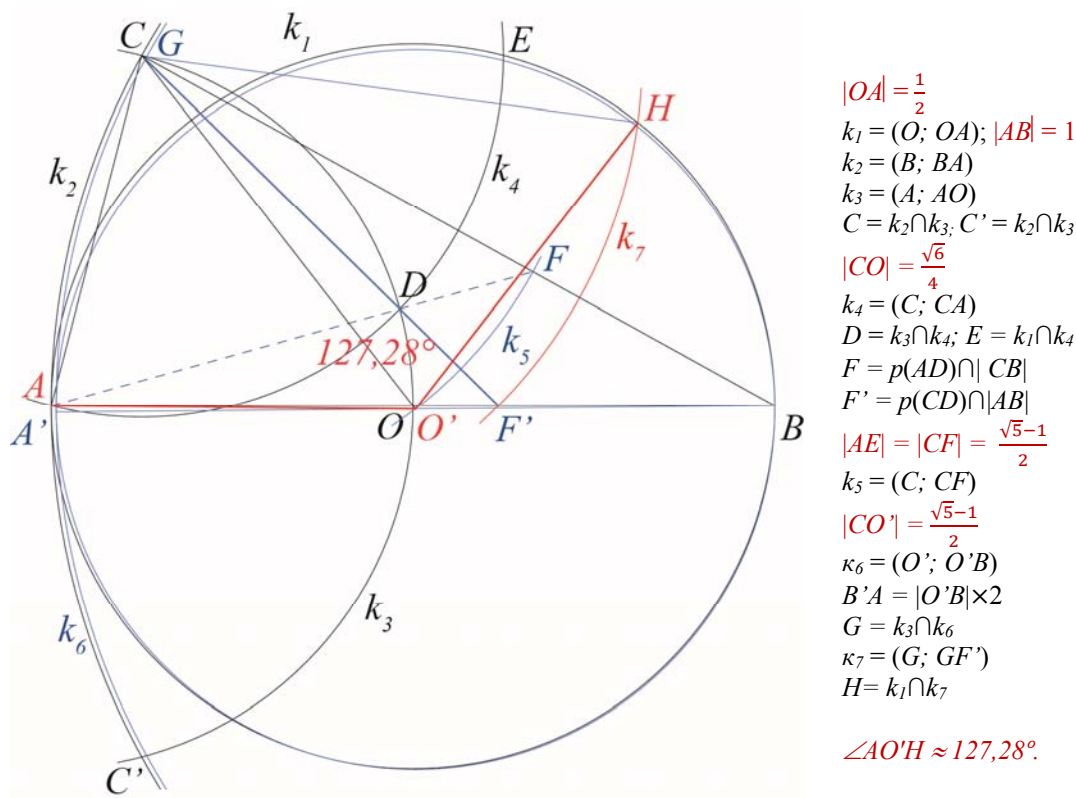 C G k₁ E
H
k₂
k₄
k₇
F
D
127,28° k₅
A
A’ O O’ F’ B
k₃
k₆
C’
|OA| = 1/2
k₁ = (O; OA); |AB| = 1
k₂ = (B; BA)
k₃ = (A; AO)
C = k₂∩k₃; C’ = k₂∩k₃
|CO| = √6/4
k₄ = (C; CA)
D = k₃∩k₄; E = k₁∩k₄
F = p(AD)∩| CB|
F’ = p(CD)∩|AB|
|AE| = |CF| = (√5−1)/2
k₅ = (C; CF)
|CO’| = (√5−1)/2
κ₆ = (O’; O’B)
B’A = |O’B|×2
G = k₃∩k₆
κ₇ = (G; GF’)
H= k₁∩k₇
∠AO'H ≈ 127,28º.